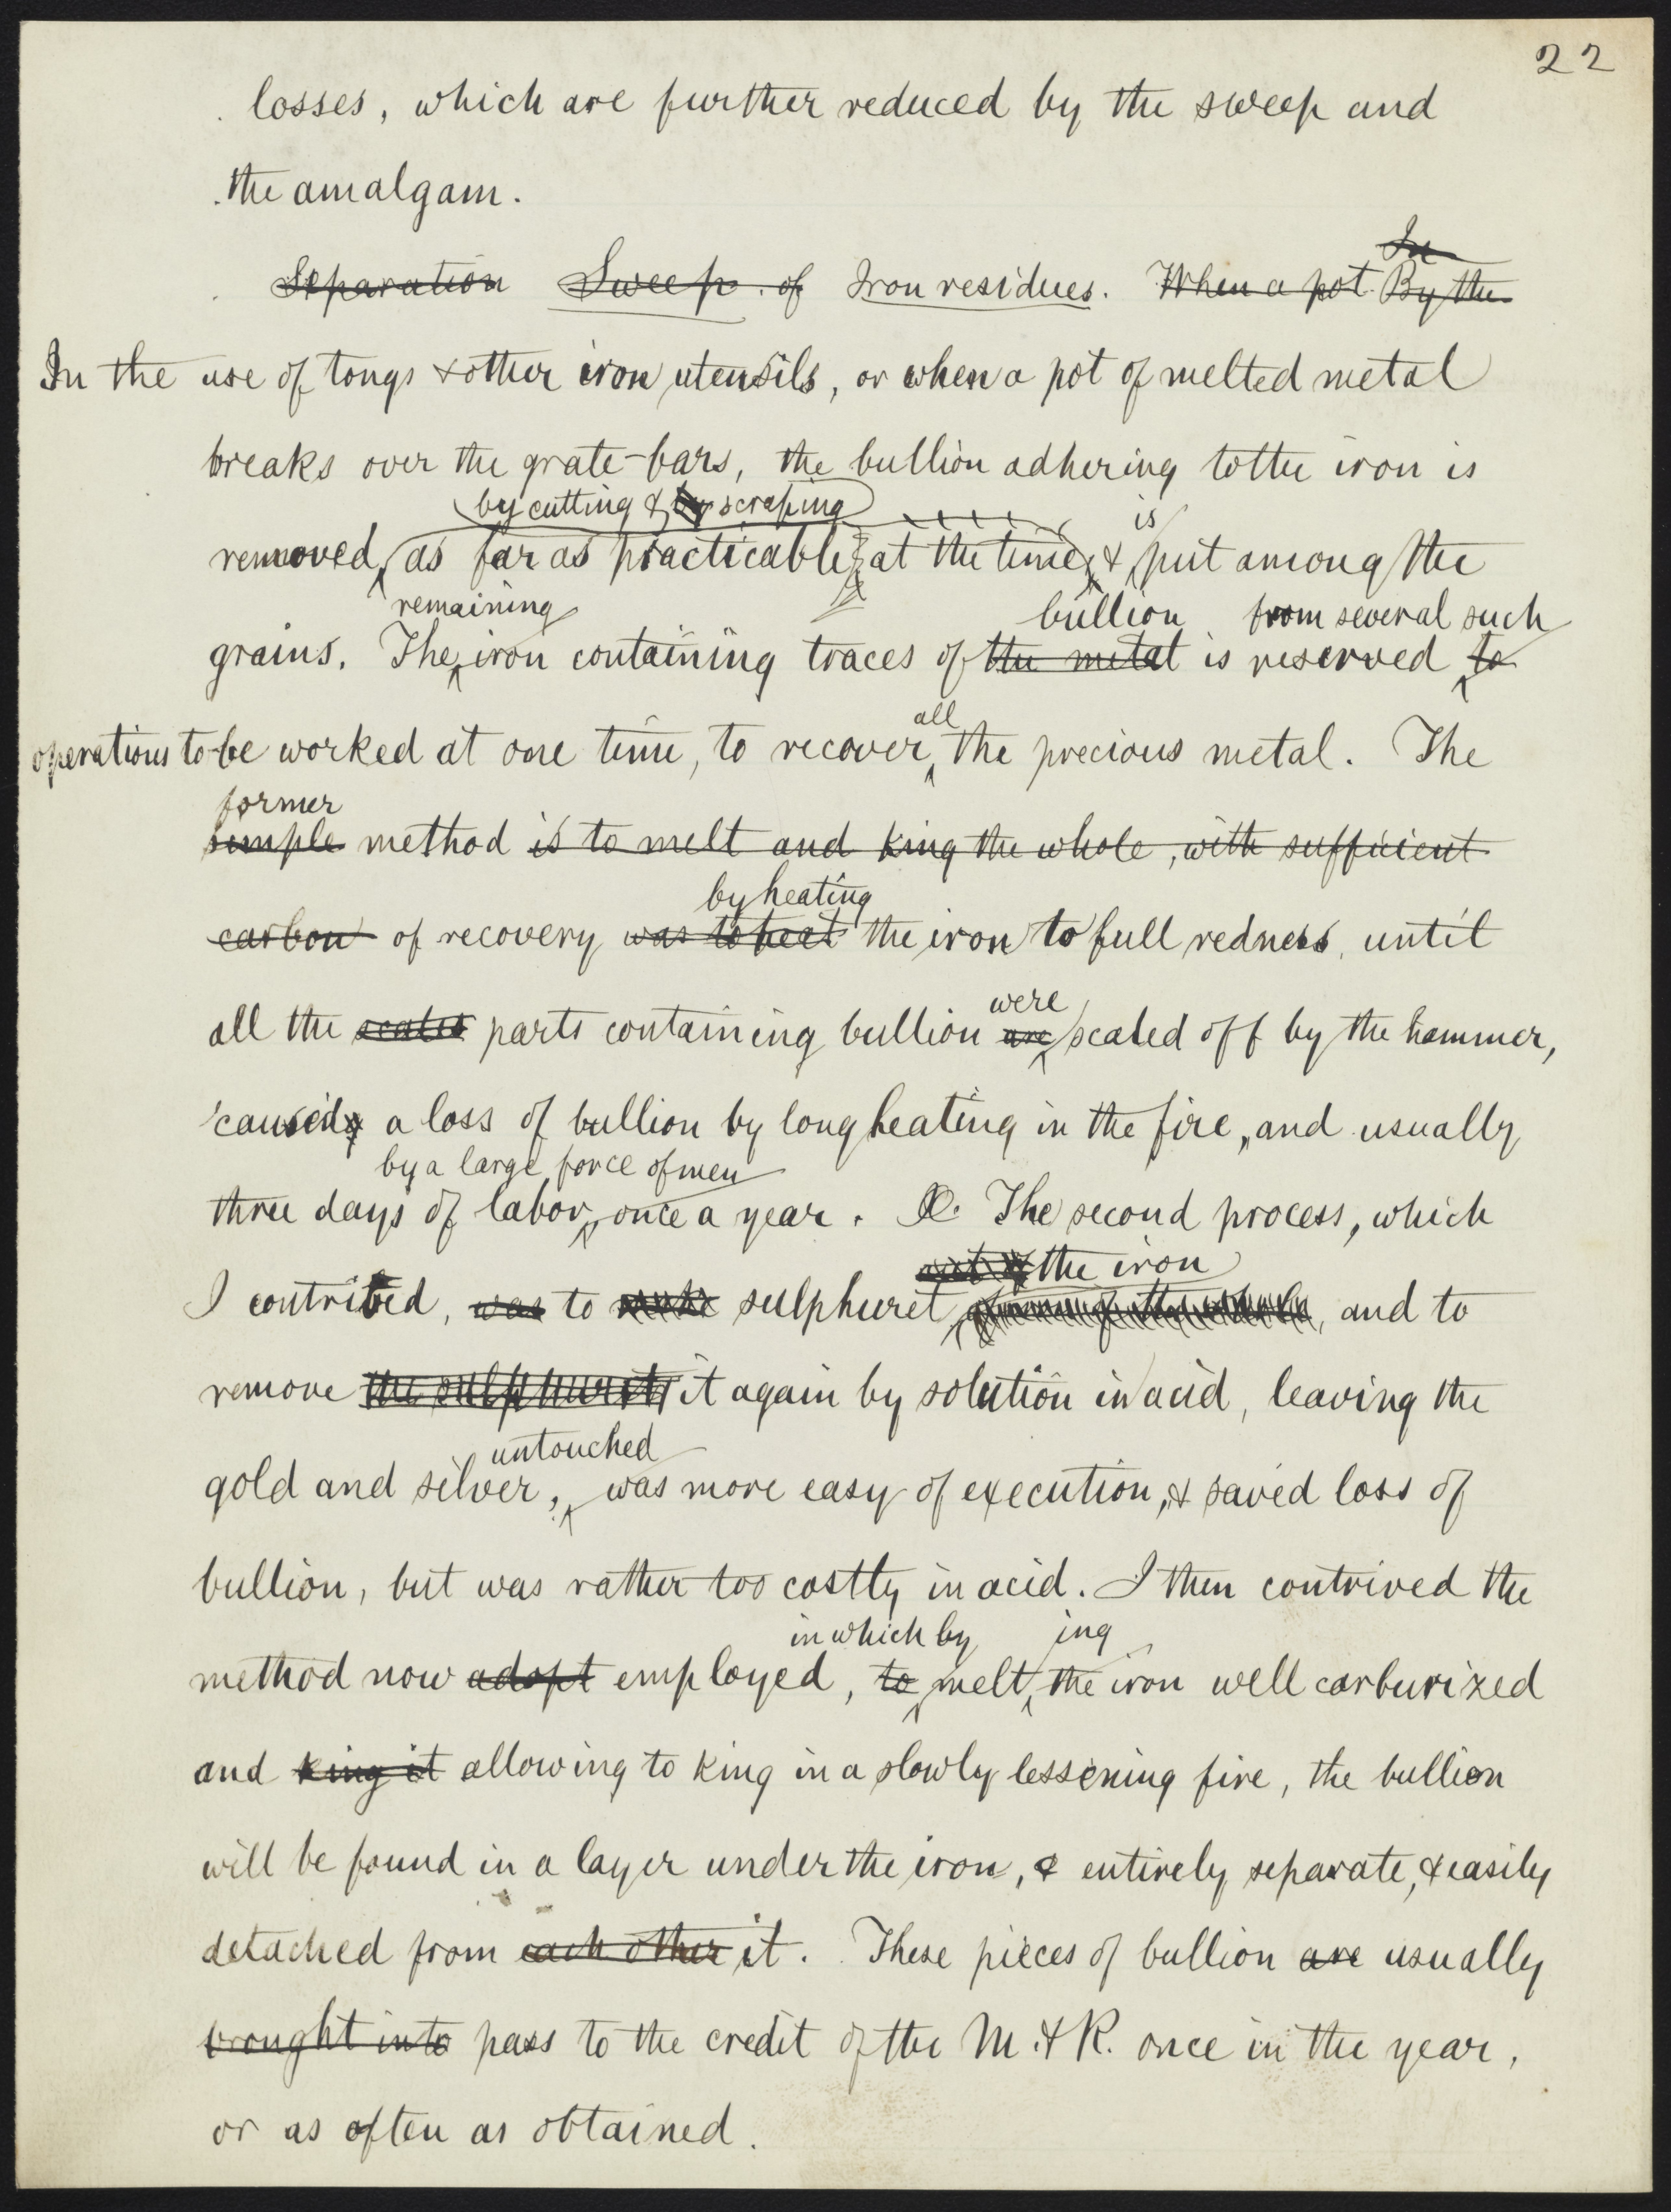 22
losses, which are further reduced by the sweep and
the amalgam.
In
Separation Sweep of Iron residues. When a pot By the
In the use of tongs & other iron utensils, or when a pot of melted metal
breaks over the grate-bars, the bullion adhering to the iron is
by cutting & by scraping is
removed, as far as practicable, at the time, & put among the
remaining bullion from several such
grains. The iron containing traces of the metal is reserved to
all
operations to be worked at one time, to recover the precious metal. The
former
simple method is to melt and king the whole, with sufficient
by heating
carbon of recovery was to heat the iron to full redness, until
were
all the scales parts containing bullion are scaled off by the hammer,
caused a loss of bullion by long heating in the fire, and usually
by a large force of men
three days of labor, once a year. The second process, which
the iron
I contrived, was to make sulphuret, and to
remove the sulphurets it again by solution in acid, leaving the
untouched
gold and silver, was more easy of execution, & saved loss of
bullion, but was rather too costly in acid. I then contrived the
in which by ing
method now adopt employed, to melt, the iron well carburized
and king it allowing to king in a slowly lessening fire, the bullion
will be found in a layer under the iron, & entirely separate, & easily
detached from each other it. These pieces of bullion are usually
brought into pass to the credit of the M. & R. once in the year,
or as often as obtained.